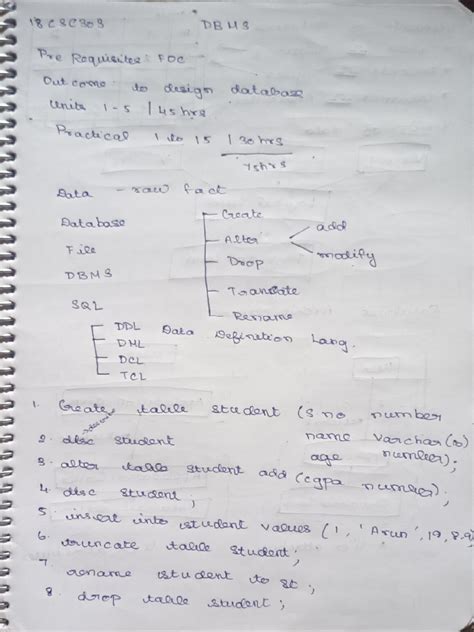 18CSC303 DBMS
Pre Requisites: FOC
Outcome: to design database
Units 1-5 / 45hrs
Practical 1 to 15 / 30hrs
75hrs
Data - raw fact
Database
File
DBMS
SQL
Create
Alter
add
modify
Drop
Translate
Rename
DDL Data Definition Lang.
DML
DCL
TCL
1. Create table student (S no number
name varchar(8)
age number);
describe
2. desc student
3. alter table student add (cgpa number);
4. desc student;
5. insert into student values (1, 'Arun', 19, 8.9
6. truncate table student;
7. rename student to st;
8. drop table student;